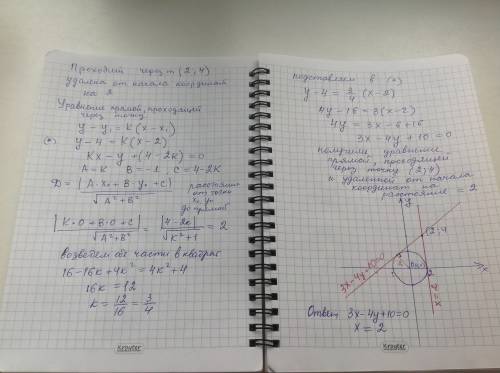 Проходит через т (2; 4)
удалена от начала координат
на 2
Уравнение прямой, проходящей
через точку
y - y₁ = K(x - x₁)
(*) y - 4 = K(x - 2)
Kx - y + (4 - 2K) = 0
A = K B = -1, C = 4 - 2K
D = |A·x₀ + B·y₀ + C| / √(A² + B²)
расстояние
от точки
x₀, y₀
до прямой
|K·0 + B·0 + C| / √(A² + B²) = |4 - 2K| / √(K² + 1) = 2
возведем об части в квадрат
16 - 16K + 4K² = 4K² + 4
16K = 12
K = 12/16 = 3/4
Kroyter
подставляем в (*)
y - 4 = 3/4 (x - 2)
4y - 16 = 3(x - 2)
4y = 3x - 6 + 16
3x - 4y + 10 = 0
получили уравнение
прямой, проходящей
через точку (2; 4)
и удаленной от начала
координат на
расстояние = 2
y
(2; 4
3x - 4y + 10 = 0
2
2
x
x = 2
Ответ 3x - 4y + 10 = 0
x = 2
Kroyter